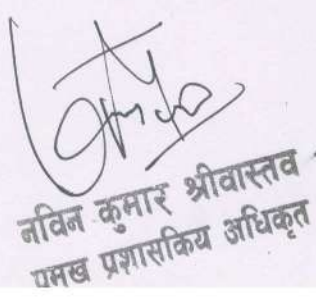 नविन कुमार श्रीवास्तव
प्रमख प्रशासकिय अधिकृत